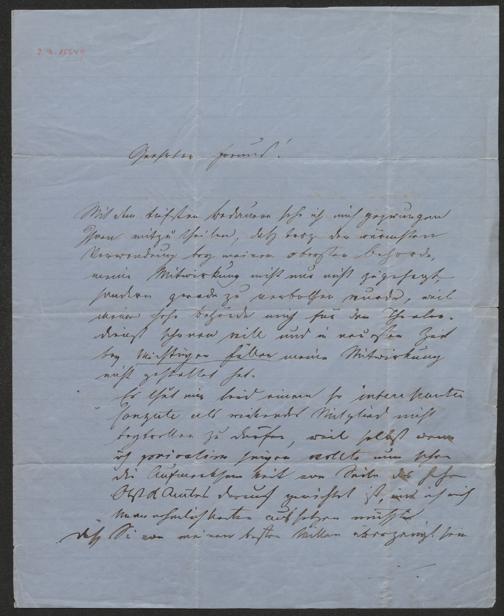 Geehrter Freund!
Mit dem tiefsten Bedauern sehe ich mich gezwungen
Ihnen mitzutheilen, daß trotz der wärmsten
Verwendung bey meiner obersten Behörde,
meine Mitwirkung nicht nur nicht zugesagt,
sondern gerade zu verbothen wurde, weil
meine hohe Behörde mich für den Theater-
dienst schonen will und in neuester Zeit
bey wichtigen Fällen meine Mitwirkung
nicht gestattet hat.
Es thut mir leid einem so interessanten
als wirkendes Mitglied nicht
beytretten zu dürfen, weil selbst wenn
ich privatim wollte nun schon
die Aufmerksamkeit von Seite des
Obst Amtes darauf gerichtet ist, und ich mich
Unannehmlichkeiten aussetzen müßte
daß Sie von meinem besten Willen überzeugt sein